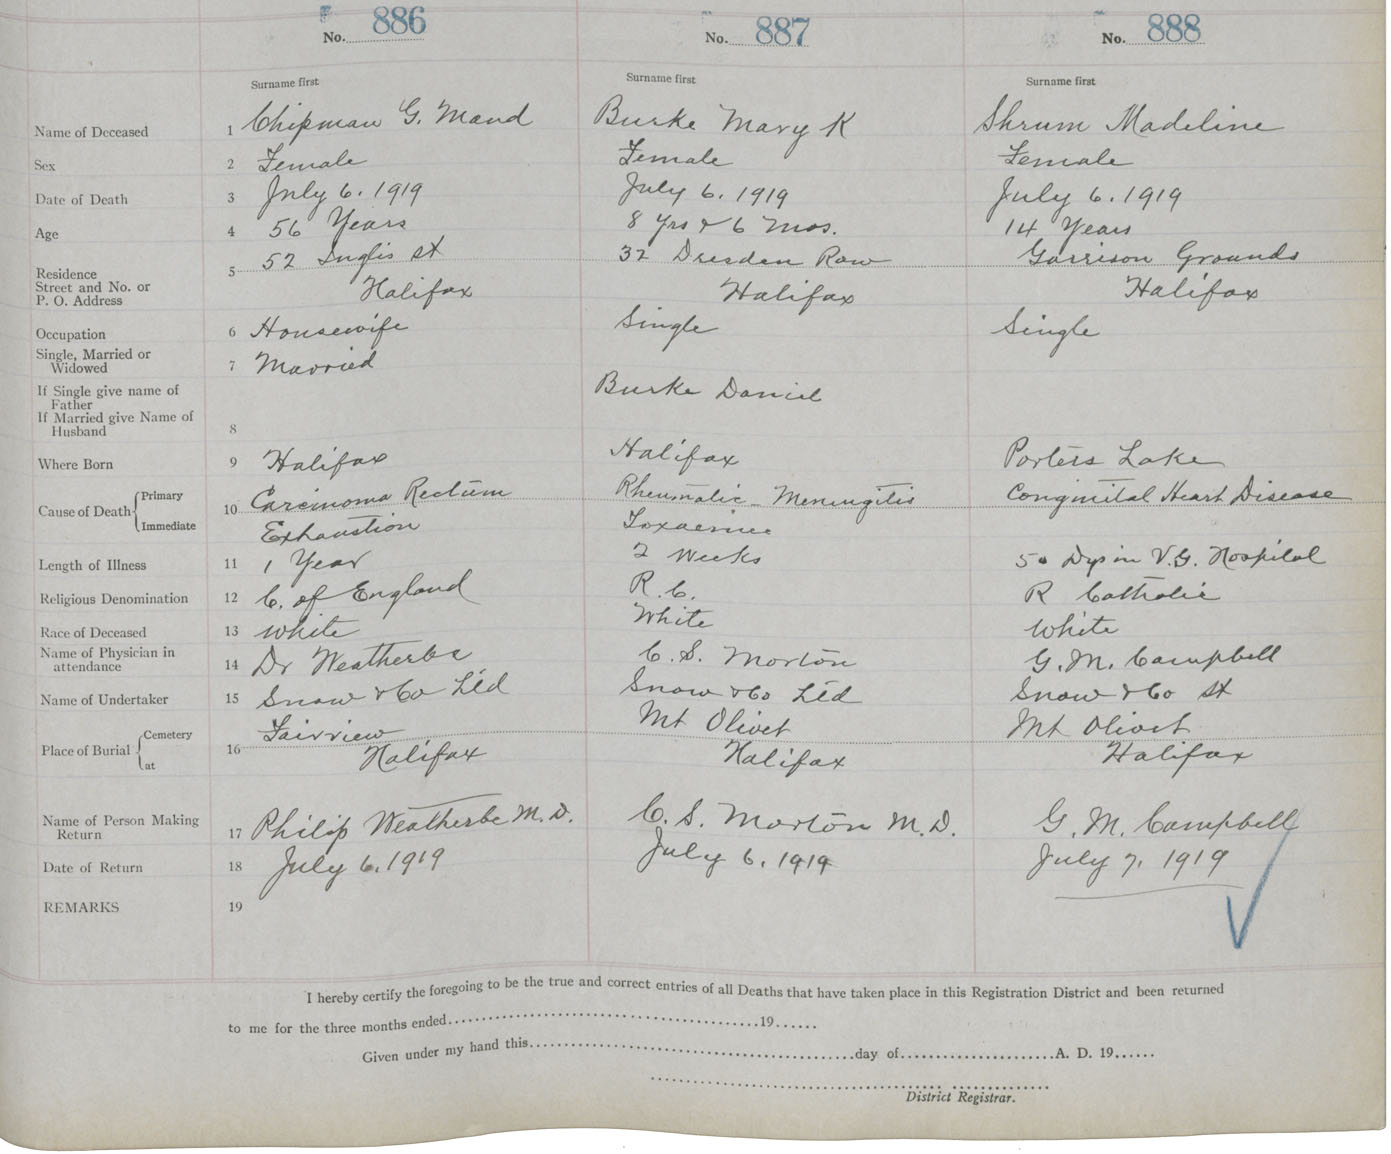 No. 886
No. 887
No. 888
Surname first
Surname first
Surname first
Name of Deceased 1 Chipman G. Maud Burke Mary K Shrum Madeline
Sex 2 Female Female Female
Date of Death 3 July 6. 1919 July 6. 1919 July 6. 1919
Age 4 56 Years 8 yrs & 6 Mos. 14 Years
Residence 5 52 Inglis St 32 Dresden Row Garrison Grounds
Street and No. or
P. O. Address Halifax Halifax Halifax
Occupation 6 Housewife Single Single
Single, Married or
Widowed 7 Married
If Single give name of
Father Burke Daniel
If Married give Name of
Husband 8
Where Born 9 Halifax Halifax Porters Lake
Cause of Death { Primary 10 Carcinoma Rectum Rheumatic Meningitis Congenital Heart Disease
Immediate Exhaustion Toxaemia
Length of Illness 11 1 Year 2 Weeks 50 Dys in V.G. Hospital
Religious Denomination 12 C. of England R. C. R Catholic
Race of Deceased 13 White White White
Name of Physician in
attendance 14 Dr Weatherbe C. S. Morton G. M. Campbell
Name of Undertaker 15 Snow & Co Ltd Snow & Co Ltd Snow & Co St
Place of Burial { Cemetery 16 Fairview Mt Olivet Mt Olivet
at Halifax Halifax Halifax
Name of Person Making
Return 17 Philip Weatherbe M. D. C. S. Morton M. D. G. M. Campbell
Date of Return 18 July 6. 1919 July 6. 1919 July 7. 1919
REMARKS 19
I hereby certify the foregoing to be the true and correct entries of all Deaths that have taken place in this Registration District and been returned
to me for the three months ended........19......
Given under my hand this........day of........A. D. 19......
District Registrar.